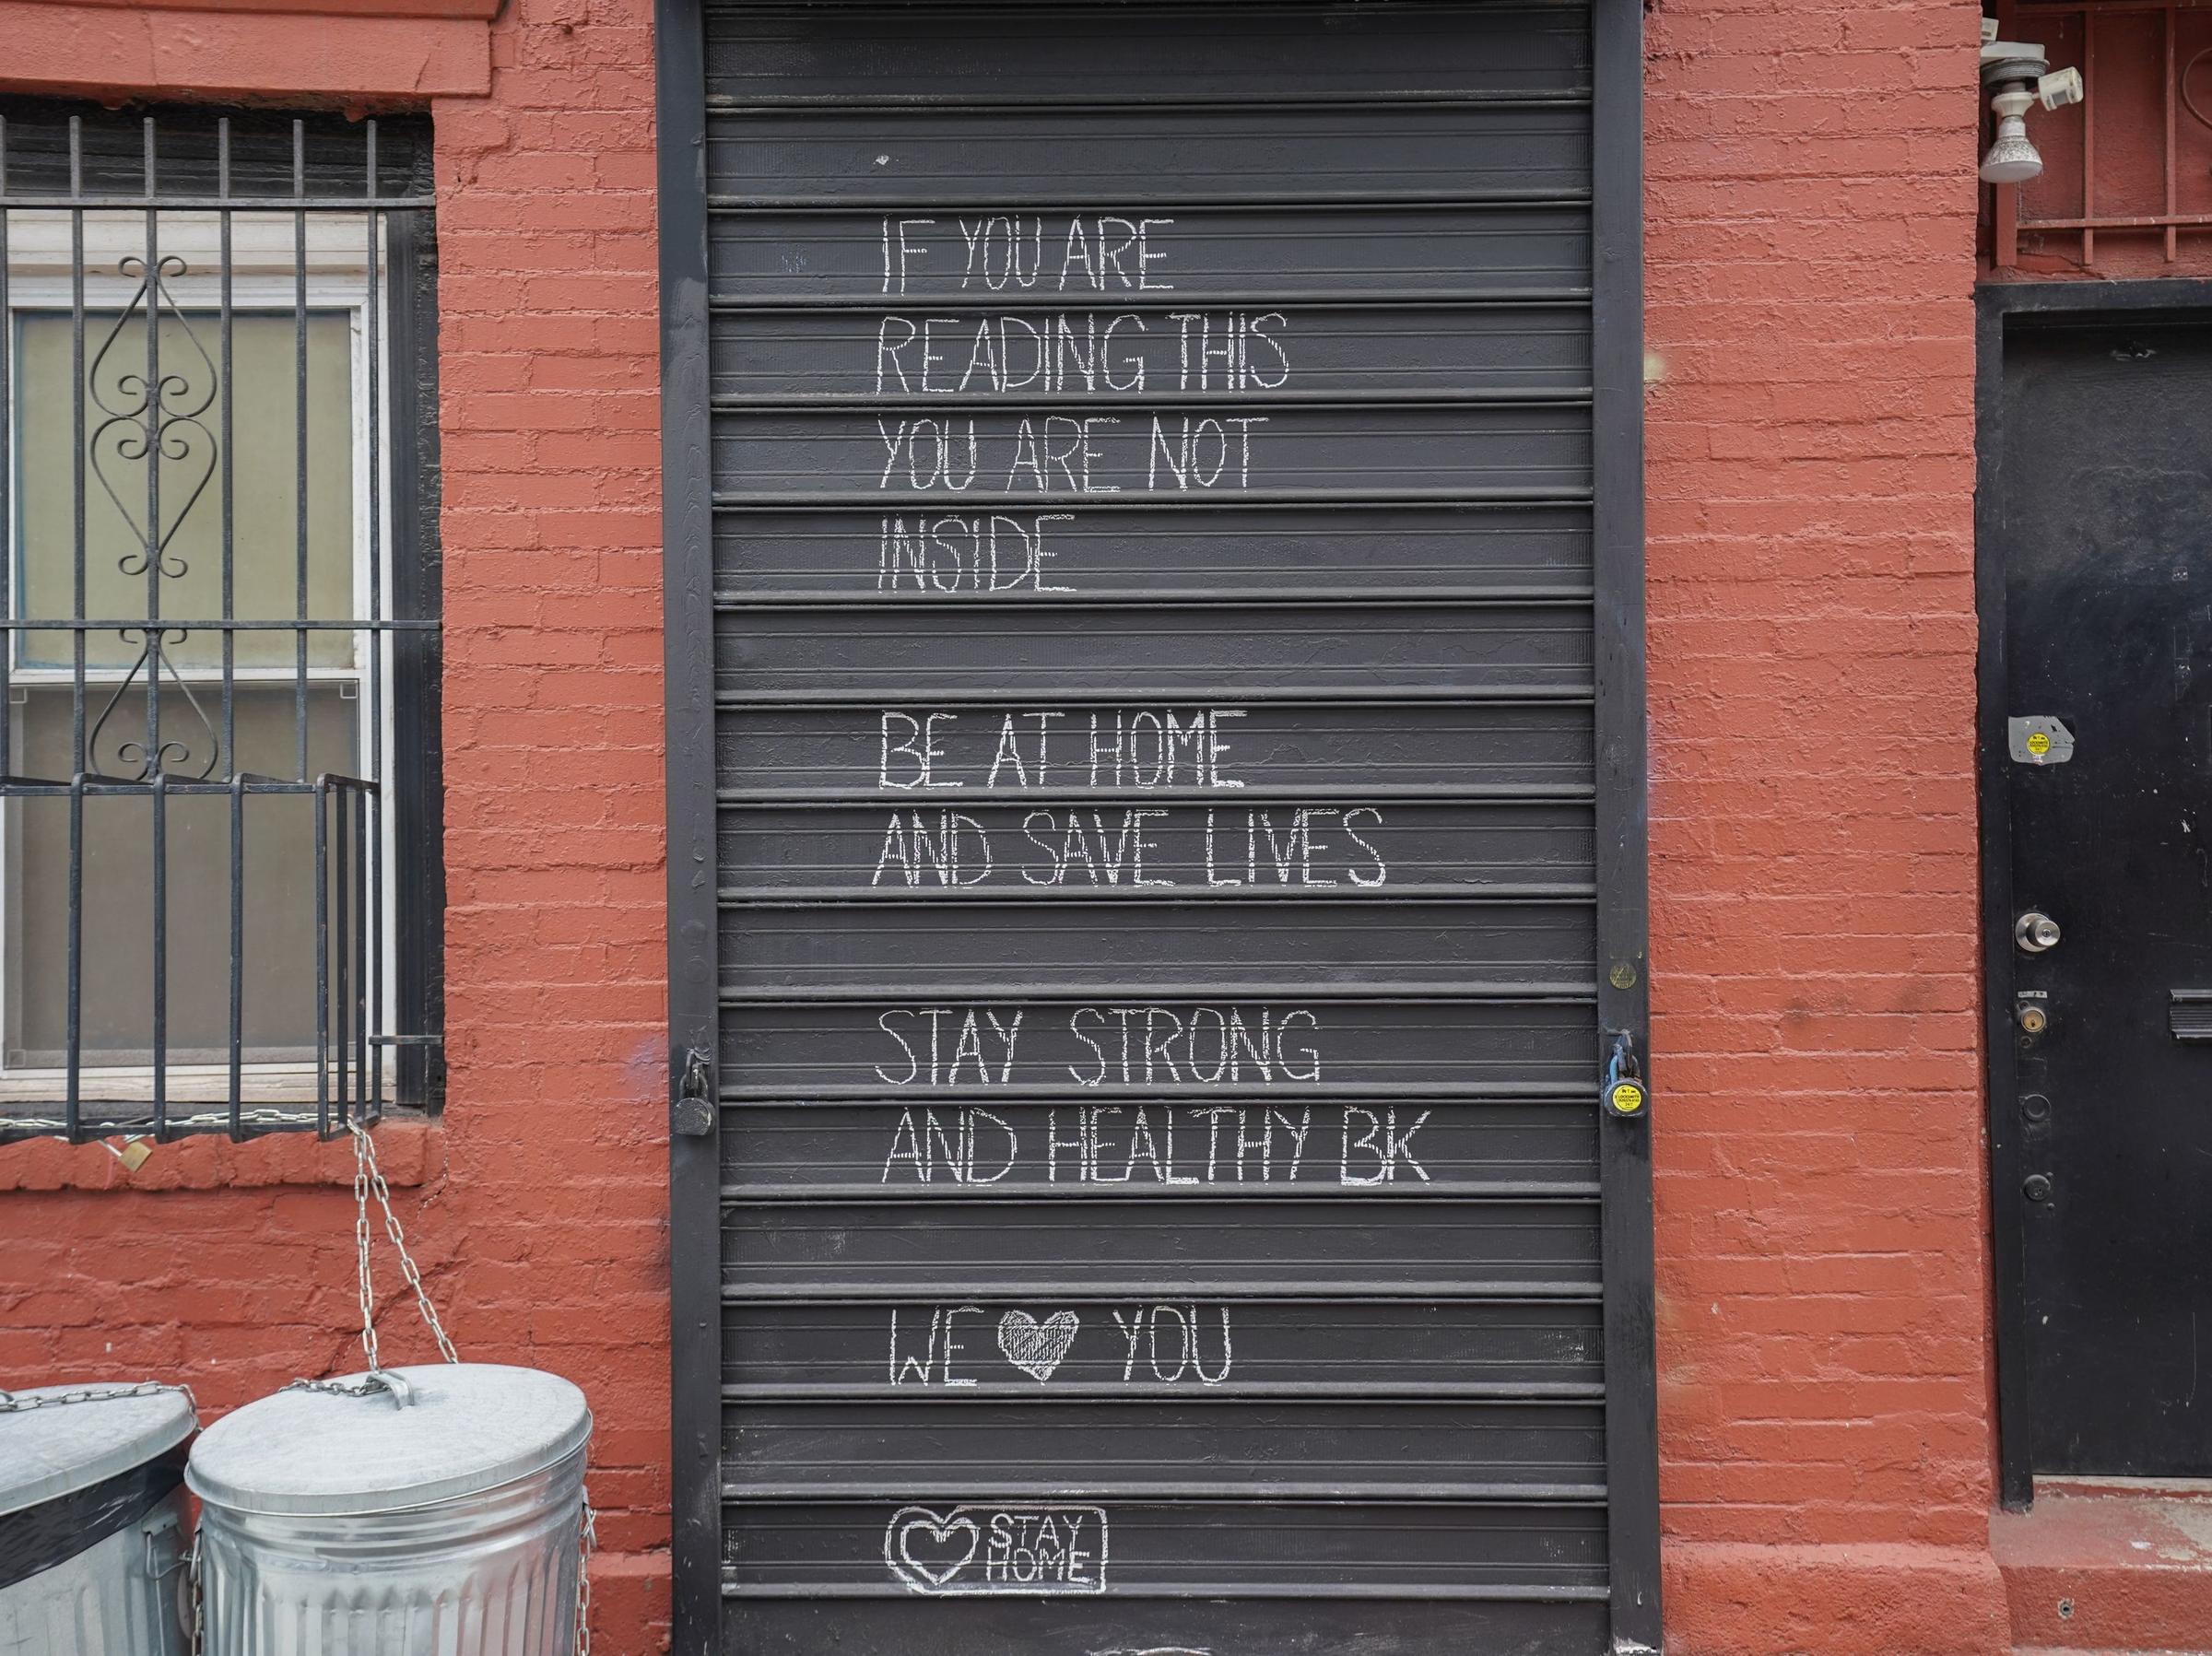 IF YOU ARE
READING THIS
YOU ARE NOT
INSIDE
BE AT HOME
AND SAVE LIVES
STAY STRONG
AND HEALTHY BK
WE ♥ YOU
♡ STAY
HOME